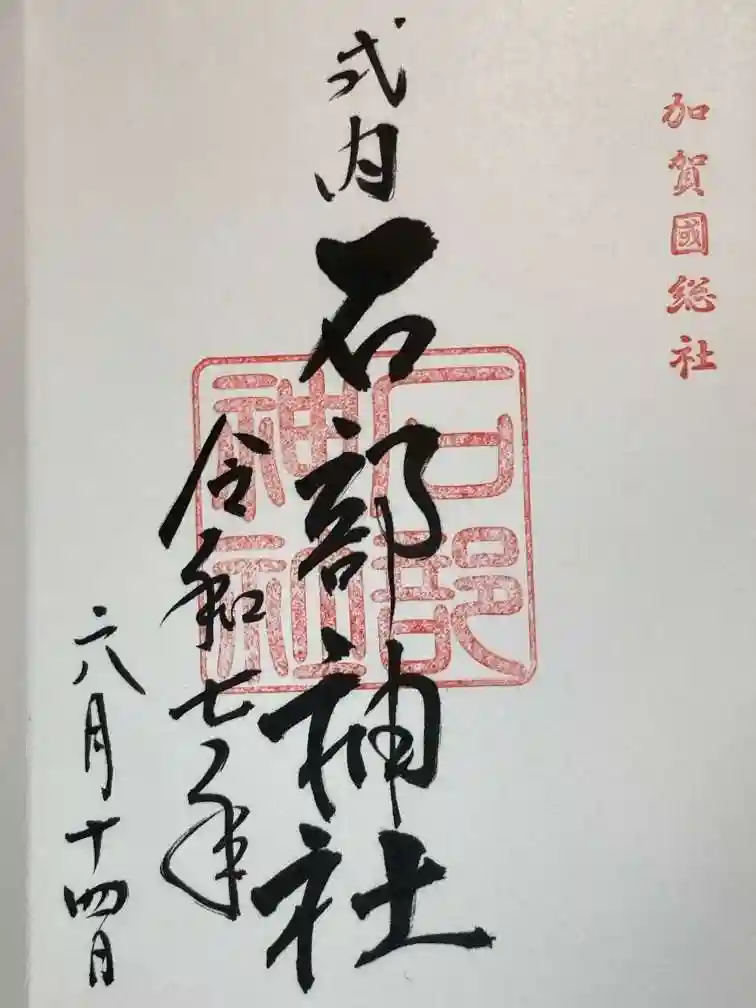 加賀國総社
式内石部神社
石部神社
令和七年
六月十四日